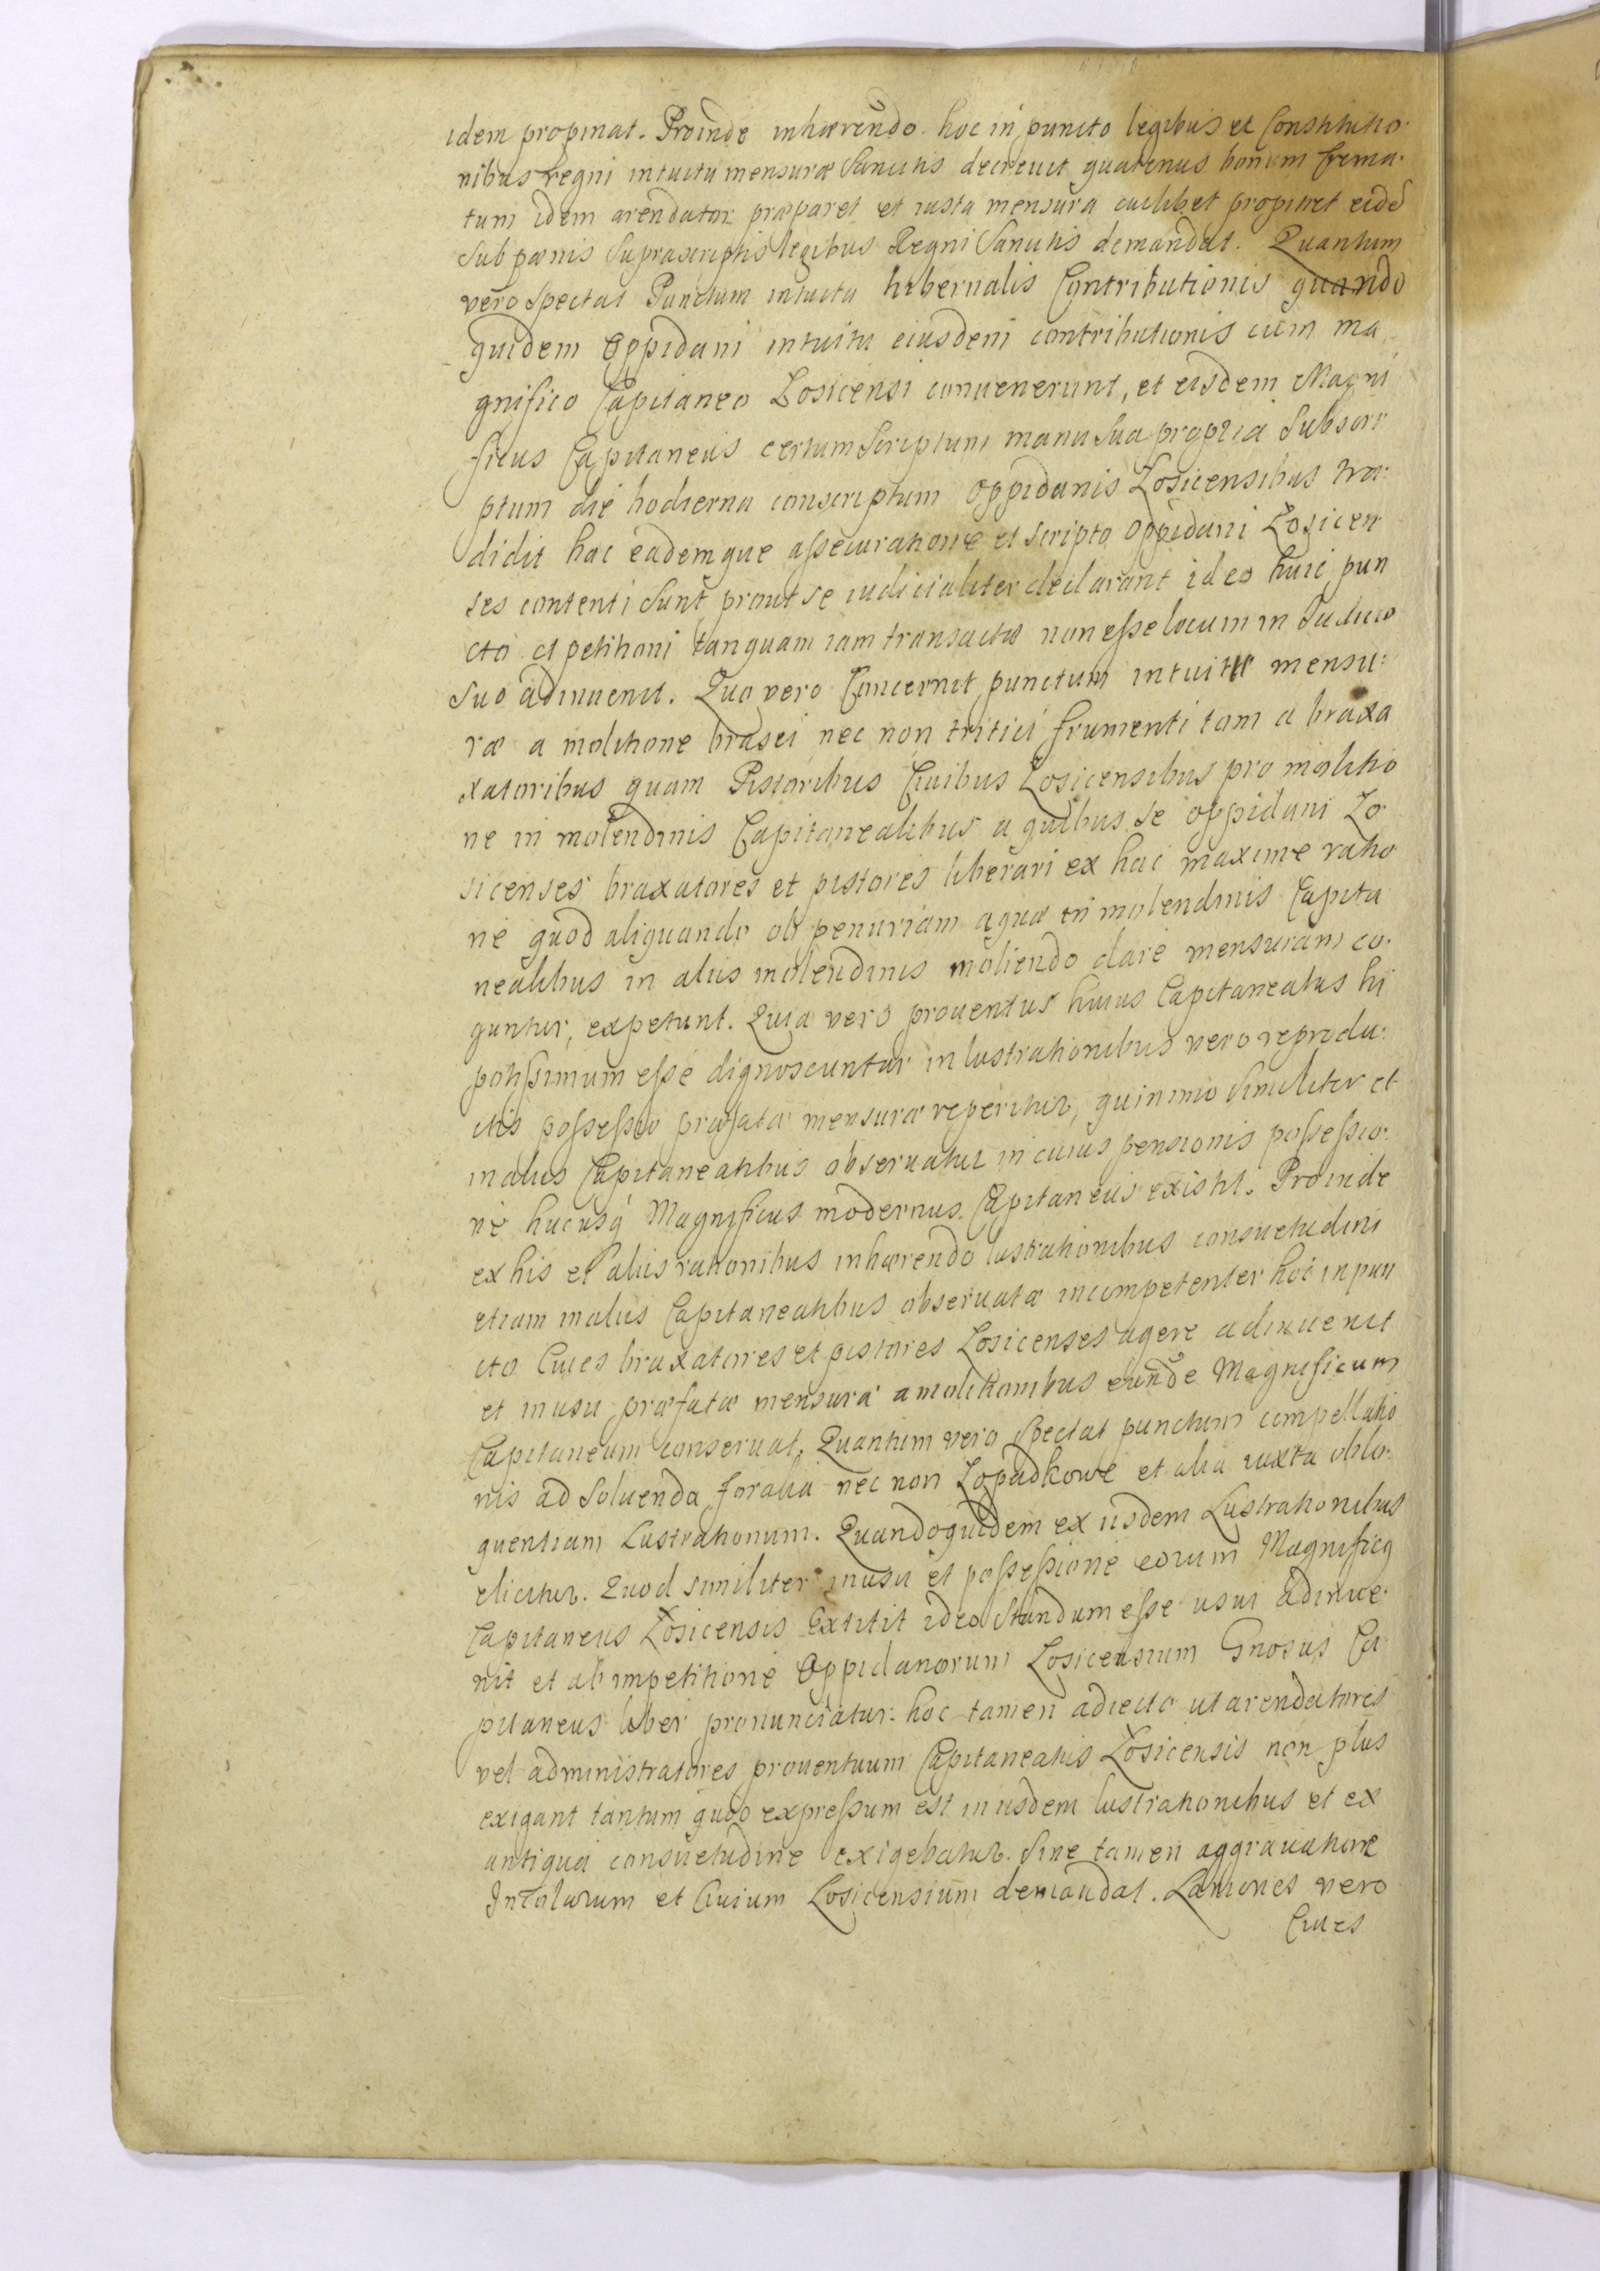 idem propinat. Proinde inhærendo hoc in puncto legibus et Constitutio-
nibus regni intuitu mensuræ Sancitis decreuit quatenus bonum crema-
tum idem arendator præparet et iusta mensura cuilibet propinet eidē
sub pænis supra scriptis legibus Regni Sancitis demandat. Quantum
vero spectat Punctum intuitu hibernalis Contributionis quando
quidem Oppidani intuitu eiusdem contributionis cum ma
gnifico Capitaneo Łosicensi conuenerunt, et eisdem Magni
ficus Capitaneus certum Scriptum manu sua propria Subscri
ptum die hodierna conscriptum Oppidanis Łosicensibus tra-
didit hac eademque assecuratione et scripto Oppidani Łosicen
ses contenti sunt prout se iudicialiter declarant ideo huic pun
cto et petitioni tanquam iam transactæ non esse locum in Iudicio
suo adinuenit. Quo vero Concernit punctum intuitu mensu-
ræ a molitione brasei nec non tritici frumenti tam a braxa
xatoribus quam Pistoribus Ciuibus Łosicensibus pro molitio
ne in molendinis Capitanealibus a quibus se oppidani Ło
sicenses braxatores et pistores liberari ex hac maxime ratio
ne quod aliquando ob penuriam aquæ in molendinis Capita
nealibus in aliis molendinis moliendo dare mensuram co-
guntur, expetunt. Quia vero prouentus huius Capitaneatus hi
potissimum esse dignoscuntur in lustrationibus vero reprodu-
ctis possessio præfatæ mensuræ reperitur, quinimo similiter et
in aliis Capitaneatibus obseruatur in cuius pensionis possessio-
ne hucusq̨ Magnificus modernus Capitaneus existit. Proinde
ex his et aliis rationibus inhærendo lustrationibus consuetudini
etiam in aliis Capitaneatibus obseruatæ incompetenter hoc in pun
cto Ciues braxatores et pistores Łosicenses agere adinuenit
et in usu præfatæ mensuræ a molitionibus eundē Magnificum
Capitaneum conseruat. Quantum vero spectat punctum compellatio
nis ad soluenda foralia nec non Łopadkowe et alia iuxta oblo-
quentiam Lustrationum. Quandoquidem ex iisdem Lustrationibus
elicitur. Quod similiter in usu et possessione eorum Magnificq
Capitaneus Łosicensis Extitit ideo standum esse usui adinue-
nit et ab impetitione Oppidanorum Łosicensium Gnosus Ca
pitaneus liber pronunciatur. hoc tamen adiecto ut arendatores
vel administratores prouentuum Capitaneatus Łosicensis non plus
exigant tantum quod expressum est in iisdem lustrationibus et ex
antiqua consuetudine exigebatur. Sine tamen aggrauatione
Incolarum et Ciuium Łosicensium demandat. Laniones vero
Ciues